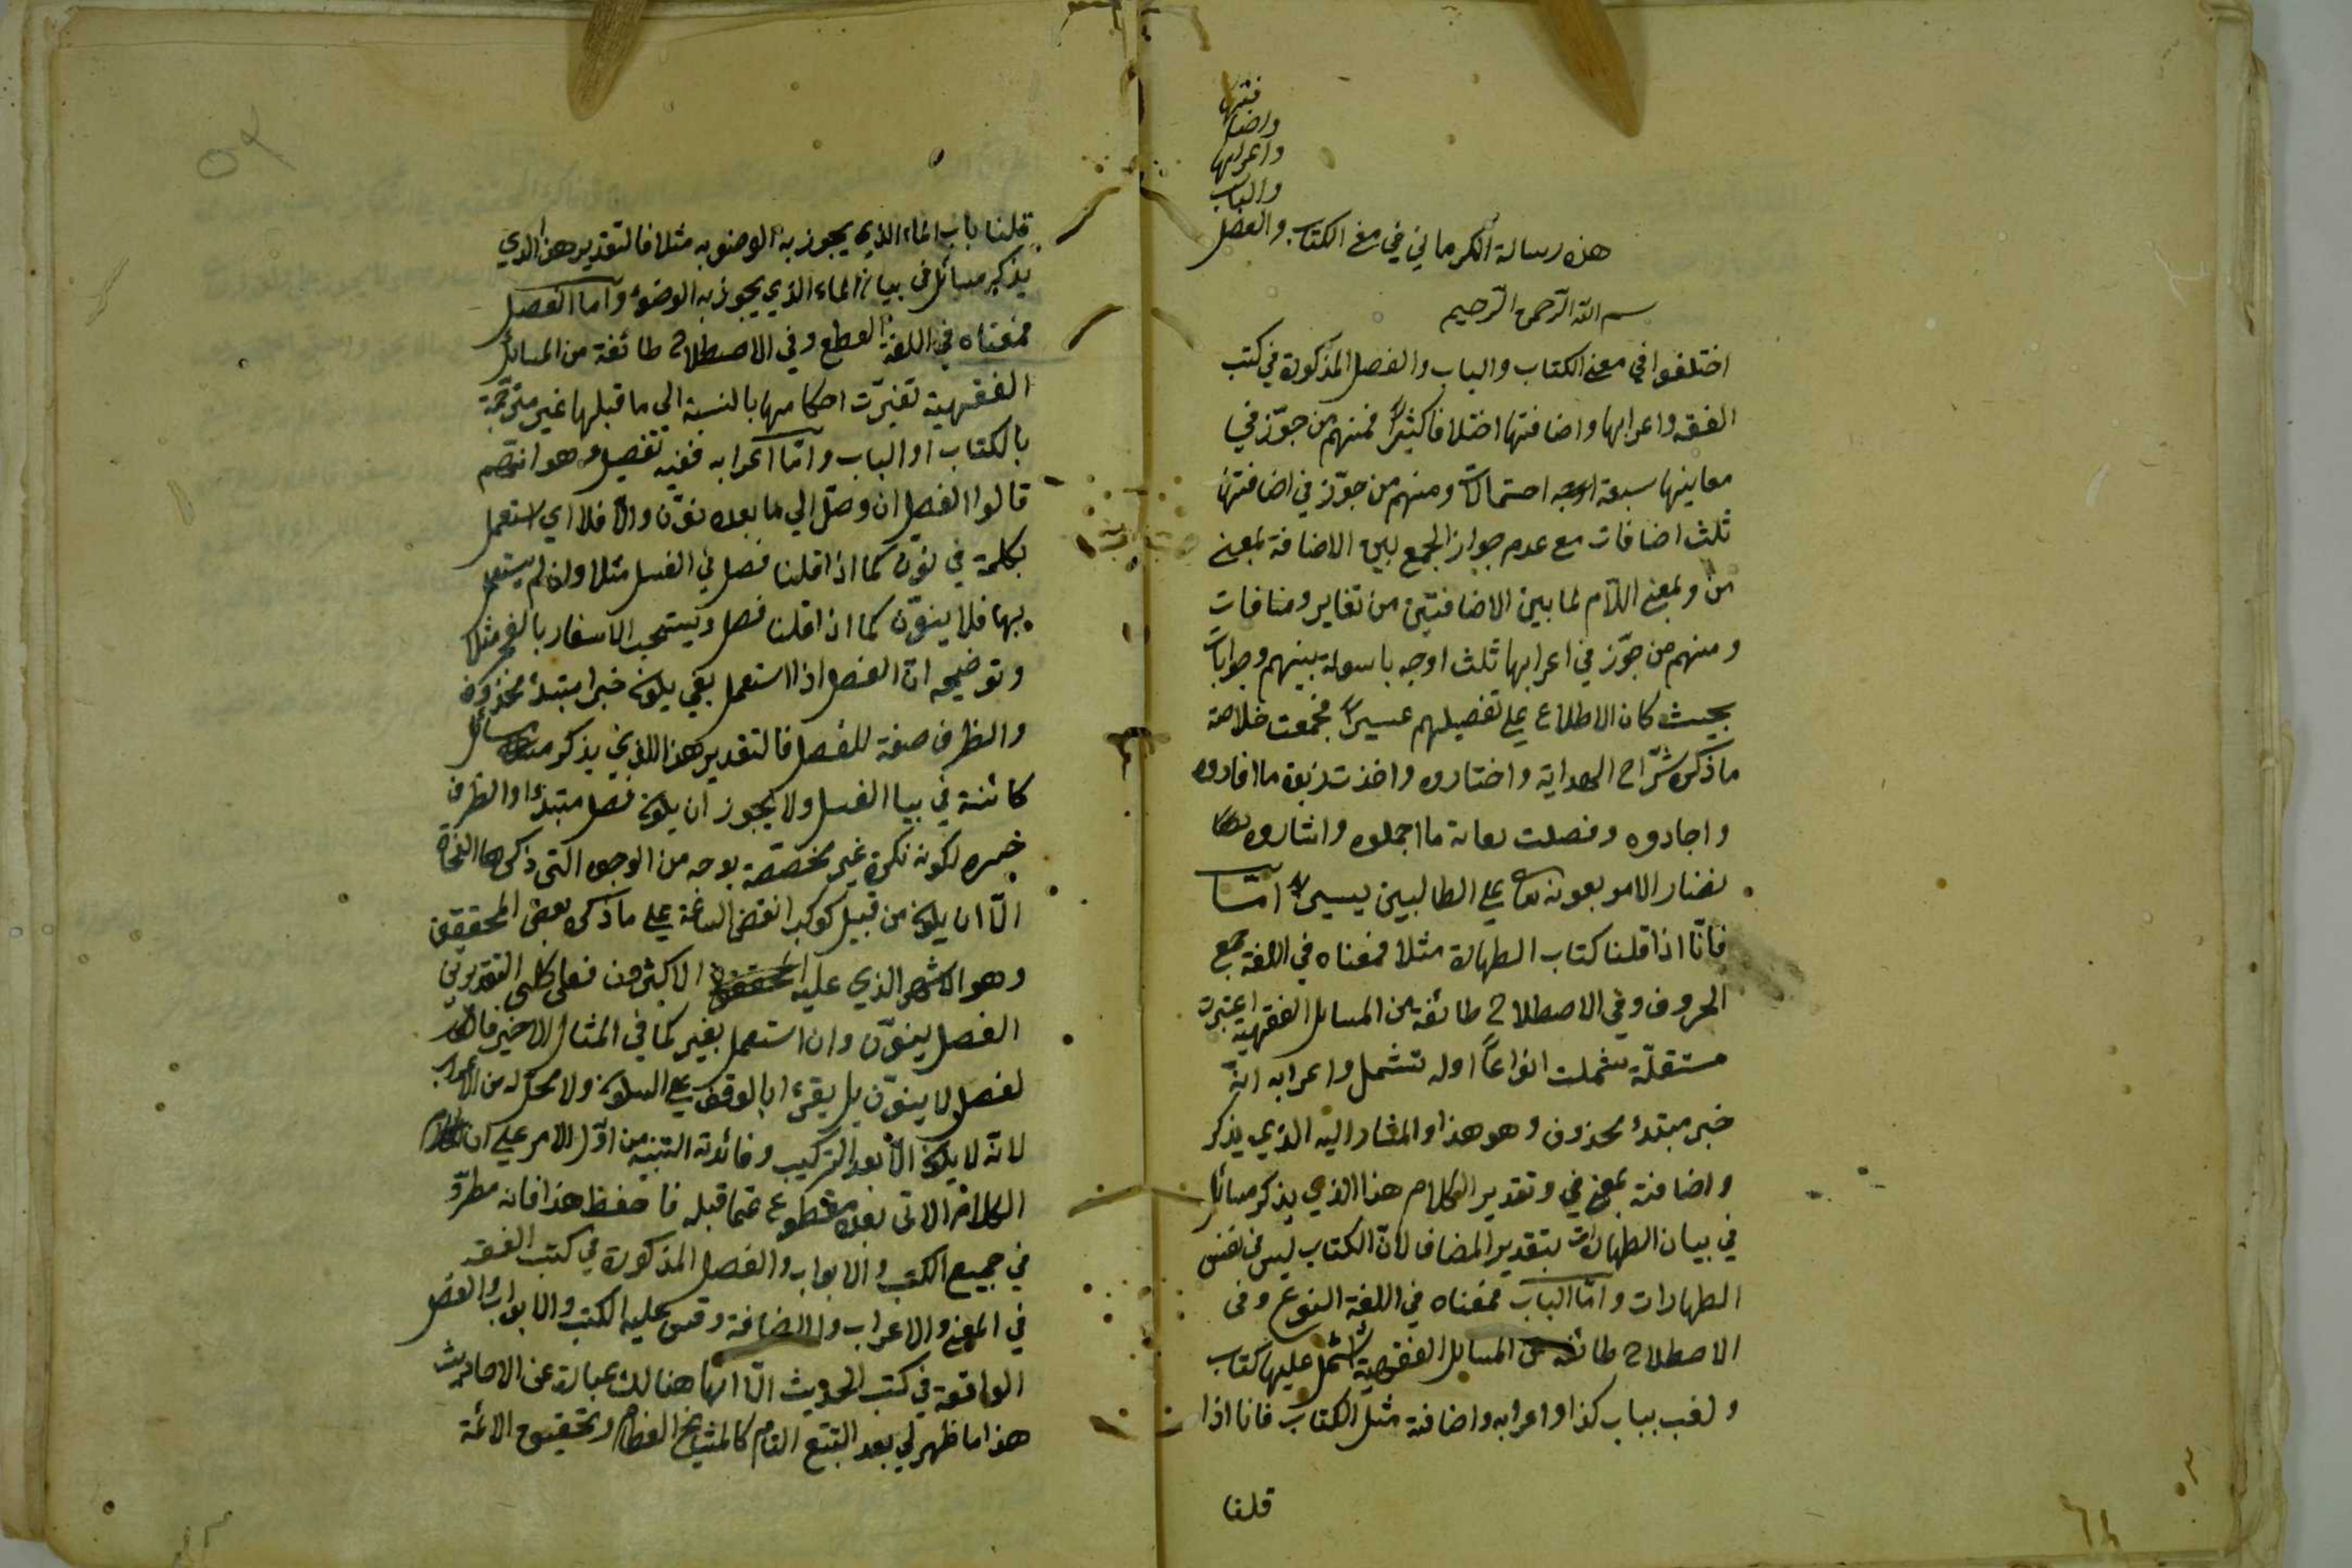 هذه رسالة الكرماني في معنى الكتاب والفصل
والباب
واعرابها
واضا
فتها
بسم الله الرحمن الرحيم
اختلفوا في معنى الكتاب والباب والفصل المذكورة في كتب
الفقه واعرابها واضافتها اختلافا كثيرا فمنهم من جوّز في
معانيها سبعة اوجه احتمالات ومنهم من جوّز في اضافتها
ثلث اضافات مع عدم جواز الجمع بين الاضافة بمعنى
من وبمعنى اللام لما بين الاضافتين من تغاير ومنافات
ومنهم من جوّز في اعرابها ثلث اوجه باسولة بينهم وجوابات
بحيث كان الاطلاع على تفصيلهم عسيرا فجمعت خلاصة
ما ذكره شرّاح الهداية واختاروه واخذت زبدة ما افادوه
واجادوه وفصلت ما اجملوه واشاروه
الامر بعونه على الطالبين يسيرا امّا
فانّا اذا قلنا كتاب الطهارة مثلا فمعناه في اللغة جمع
الحروف وفي الاصطلاح طائفة من المسائل الفقهية اعتبرت
مستقلّة شملت انواعا او لم تشمل واعرابه انّه
خبر مبتدء محذوف وهو هذا والمشار اليه الذي يذكر
واضافته بمعنى في وتقدير الكلام هذا الذي يذكر مسائل
في بيان الطهارات بتقدير المضاف لانّ الكتاب ليس في نفس
الطهارات وامّا الباب فمعناه في اللغة النوع وفي
الاصطلاح طائفة من المسائل الفقهية اشتمل عليها كتاب
ولقب بباب كذا واعرابه واضافته مثل الكتاب فانا اذا
قلنا
قلنا باب الماء الذي يجوز به الوضوء به مثلا فالتقدير هذا الذي
يذكر مسائل في بيان الماء الذي يجوز به الوضوء وامّا الفصل
فمعناه في اللغة القطع وفي الاصطلاح طائفة من المسائل
الفقهية تغيّرت احكامها بالنسبة الى ما قبلها غير مترجمة
بالكتاب او الباب وامّا اعرابه ففيه تفصيل وهو انهم
قالوا الفصل ان وصل الى ما بعده نوّن والّا فلا اي استعمل
بكلمة في نوّن كما اذا قلنا فصل في الغسل مثلا وان لم يستعمل
بها فلا ينوّن كما اذا قلنا فصل ويستحب الاسفار بالفجر مثلا
وتوضيحه انّ الفصل اذا استعمل بفي يكون خبرا مبتدء محذوف
والظرف صفة للفصل فالتقدير هذا الذي يذكر مسائل
كائنة في بيان الغسل ولا يجوز ان يكون فصل مبتدء والظرف
خبره لكونه نكرة غير مخصّصة بوجه من الوجوه التي ذكرها النحاة
الّا ان يكون من قبيل كوكب انقضّ الساعة على ما ذكره بعض المحققين
وهو الاشهر الذي عليه الاكثرون فعلى كلى التقديرين
الفصل ينوّن وان استعمل بغير كما في المثال الاخير
لفصل لا ينوّن بل يقرء بالوقف على السكون ولا محل له من الاعراب
لانّه لا يكون الّا بعد التركيب وفائدته التنبيه من اوّل الامر على ان
الكلام الآتي بعده مقطوع عمّا قبله فاحفظ هذا فانه مطرّد
في جميع الكتب والابواب والفصل المذكورة في كتب الفقه
في المعنى والاعراب والاضافة وقس عليه الكتب والابواب والفصل
الواقعة في كتب الحديث الّا انها هنالك عبارة عن الاحاديث
هذا ما ظهر لي بعد التتبع التام كالمشايخ العظام وتحقيق الائمة